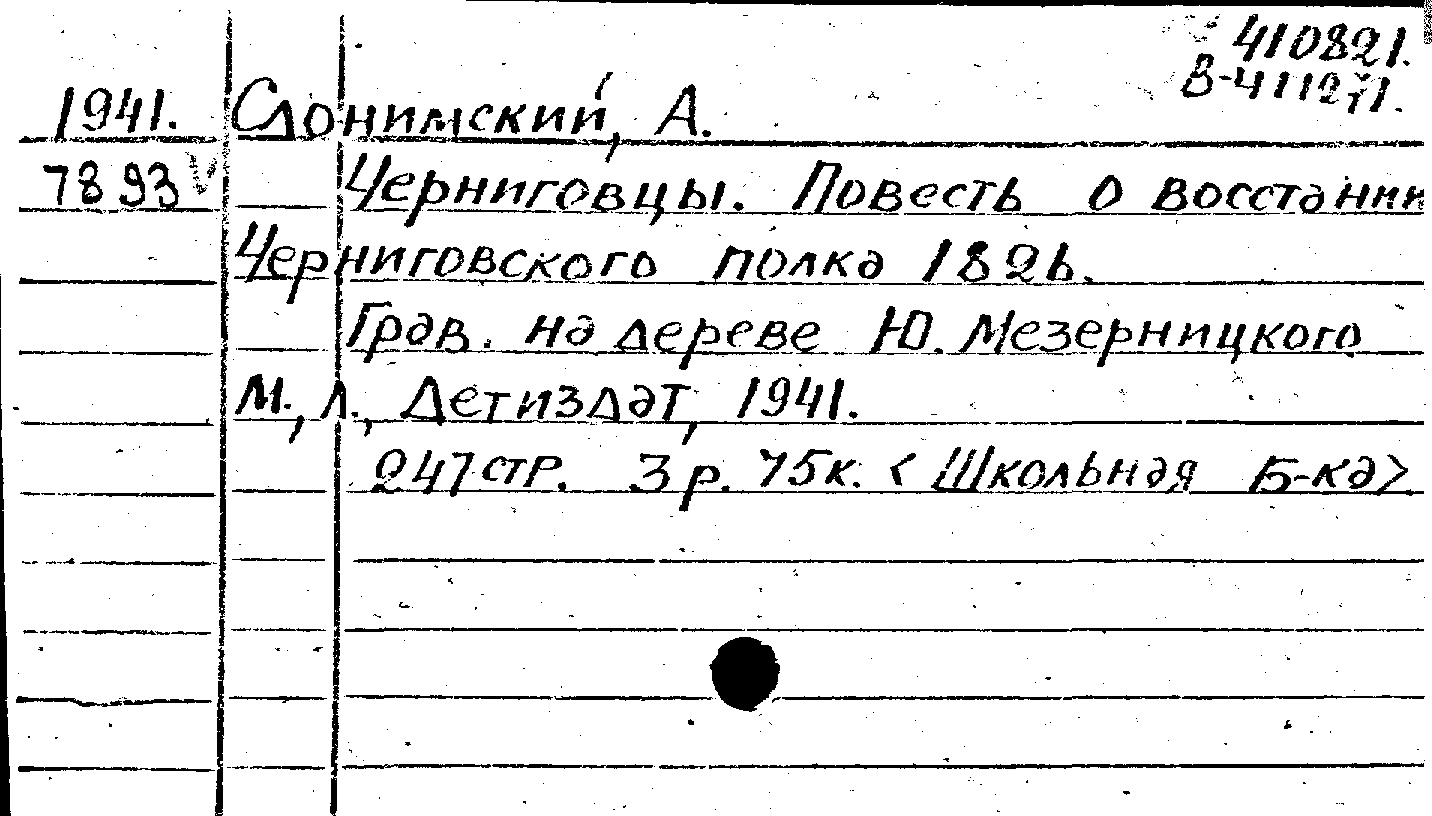 410821.
В-411271.
1941. Слонимский, А.
7893 V Черниговцы. Повесть о восстании
Черниговского полка 1826.
Грав. на дереве Ю. Мезерницкого
М., Л., Детиздат, 1941.
247 стр. 3 р. 75 к. <Школьная Б-ка>